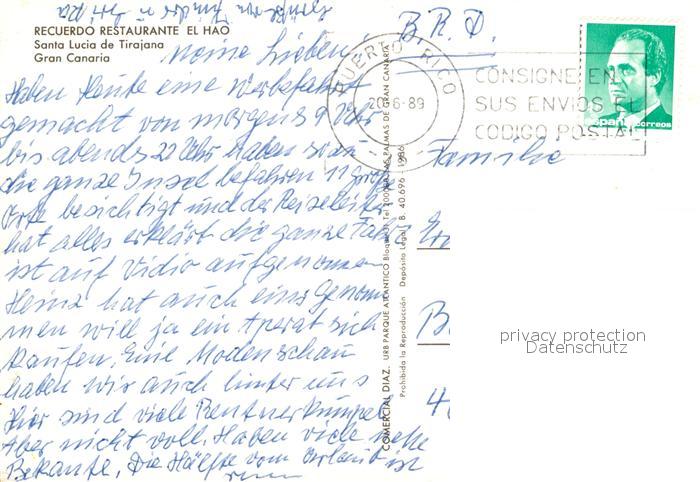 RECUERDO RESTAURANTE EL HAO
Santa Lucia de Tirajana
Gran Canaria
Meine Lieben!
Haben Heute eine werbefahrt
gemacht von morgens 9 Uhr
bis abends 22 Uhr. Haben so an
die ganze Insel befahren 11 große
Orte besichtigt und der Reiseleiter
hat alles erklärt die ganze Fahrt
ist auf Vidio aufgenommen
Heinz hat auch eins genom
men will ja ein Aperat sich
Kaufen. Eine Modenschau
haben wir auch hinter uns
Hier sind viele Rentnerkumpel
Aber nicht voll. Haben viele nette
Bekante. Die Hälfte vom Urlaub ist
rum
COMERCIAL DIAZ. URB PARQUE ATLANTICO Bloque PALMAS DE GRAN CANARIA
Prohibida la Reproducción Depósito Legal B. 40.696 - 1986
B.R.D.
PUERTO RICO
20-6-89
CONSIGNE EN
SUS ENVIOS EL
CODIGO POSTAL
españa correos
Familie
B
4
privacy protection
Datenschutz